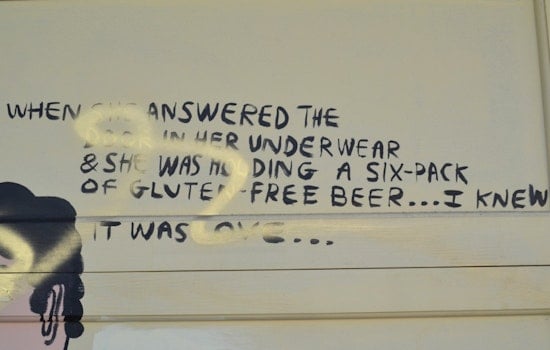 WHEN SHE ANSWERED THE
DOOR IN HER UNDERWEAR
& SHE WAS HOLDING A SIX-PACK
OF GLUTEN-FREE BEER...I KNEW
IT WAS LOVE...